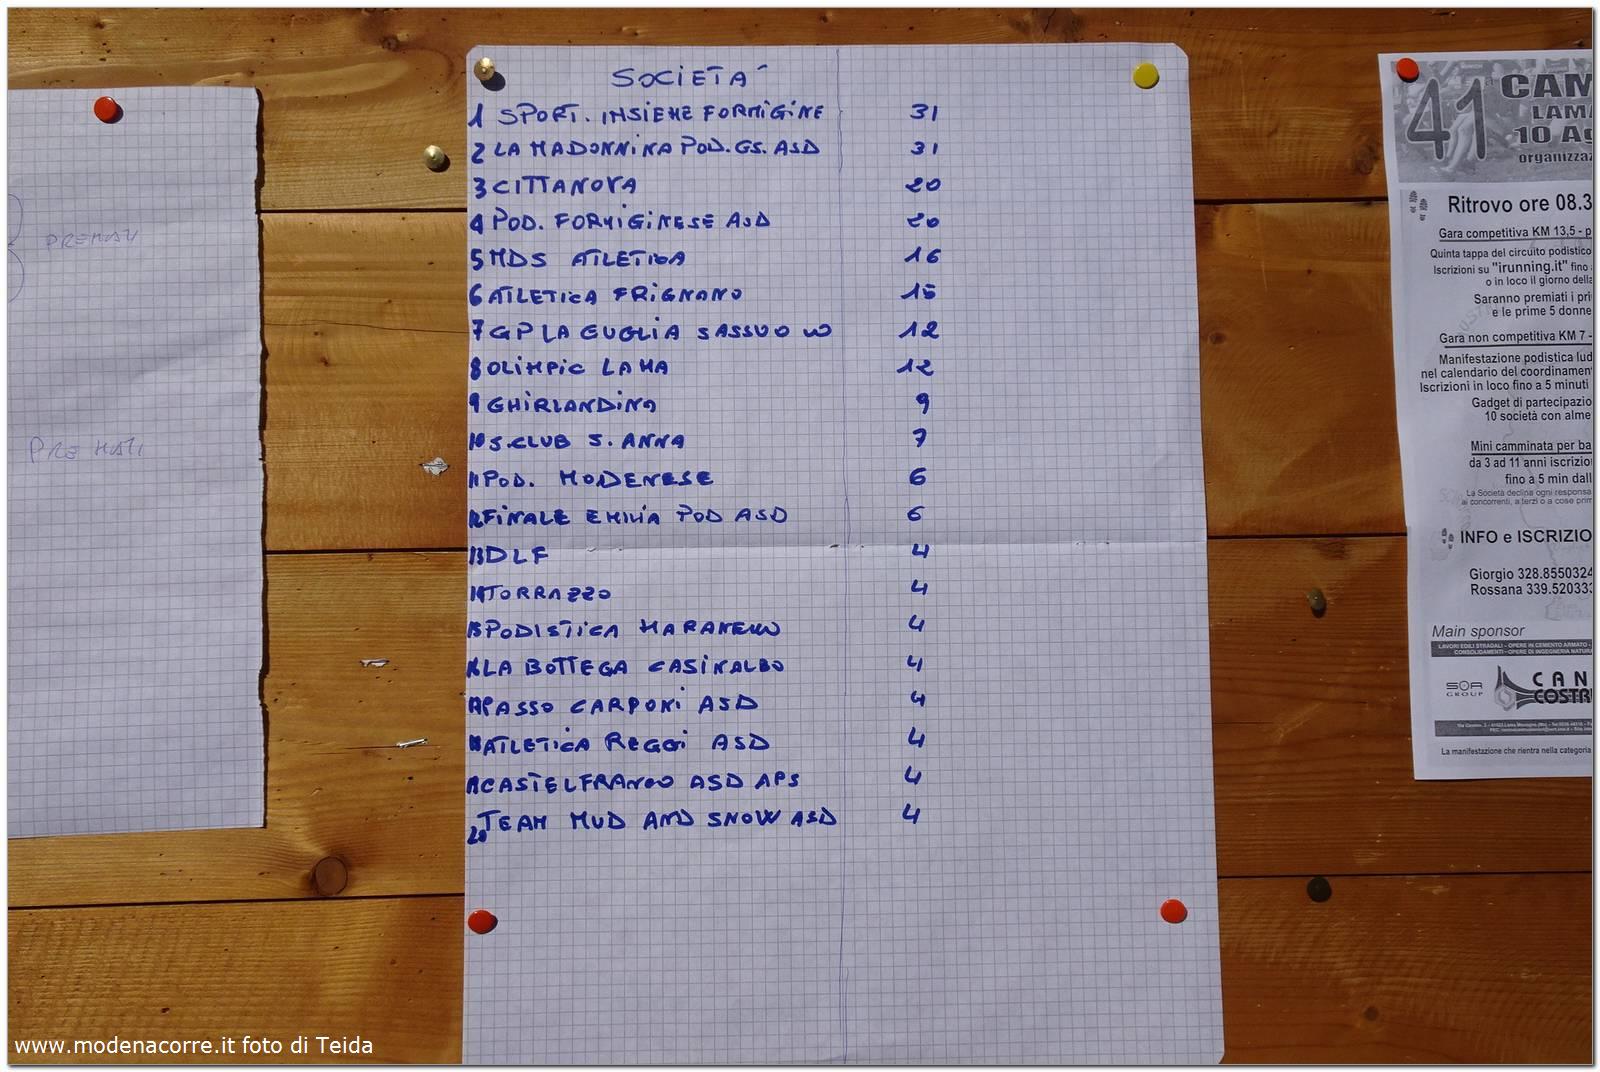 PREMIATI
PREMIATI
SOCIETA'
1 SPORT. INSIEME FORMIGINE 31
2 LA MADONNINA POD. GS. ASD 31
3 CITTANOVA 20
4 POD. FORMIGINESE ASD 20
5 MDS ATLETICA 16
6 ATLETICA FRIGNANO 15
7 GP LA GUGLIA SASSUOLO 12
8 OLIMPIC LAMA 12
9 GHIRLANDINA 9
10 S.CLUB S. ANNA 7
11 POD. MODENESE 6
12 FINALE EMILIA POD ASD 6
13 DLF 4
14 TORRAZZO 4
15 PODISTICA MARANELLO 4
16 LA BOTTEGA CASINALBO 4
17 PASSO CARPONI ASD 4
18 ATLETICA REGGI ASD 4
19 CASTELFRANCO ASD APS 4
20 TEAM MUD AND SNOW ASD 4
41 CAM
LAMA
10 AG
organizzaz
Ritrovo ore 08.3
Gara competitiva KM 13,5 - p
Quinta tappa del circuito podistico
Iscrizioni su "irunning.it" fino
o in loco il giorno della
Saranno premiati i pri
e le prime 5 donne
Gara non competitiva KM 7 -
Manifestazione podistica lud
nel calendario del coordinamen
Iscrizioni in loco fino a 5 minuti
Gadget di partecipazio
10 società con alme
Mini camminata per ba
da 3 ad 11 anni iscrizio
fino a 5 min dall
La Società declina ogni responsa
ai concorrenti, a terzi o a cose prim
INFO e ISCRIZIO
Giorgio 328.8550324
Rossana 339.520333
Main sponsor
LAVORI EDILI STRADALI - OPERE IN CEMENTO ARMATO -
CONSOLIDAMENTI - OPERE DI INGEGNERIA NATURA
SOA
GROUP
CAN
COSTRU
La manifestazione che rientra nella categoria
www.modenacorre.it foto di Teida